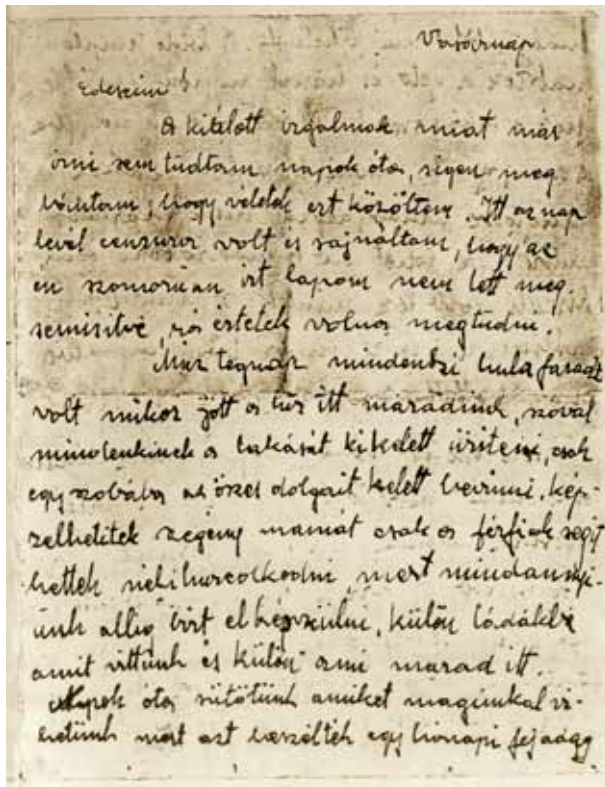 Vasárnap
Édeseim
A kitelott izgalmak miat már
irni sem tudtam napok óta,ségen meg
vártam, hogy veletek ezt közöltem. Itt az nap
levél cenzura volt és sajnáltam, hogy az
én szomorúan irt lapom nem lett meg
semisitve, rá értetek volna megtudni.
Már tegnap mindenki hulafáradt
volt mikor jött a hir itt maradunk, szóval
mindenkinek a lakását kikelett üriteni, csak
egy szobába az öszes dolgait kelett bevinni, kép-
zelhetitek szegény mamát csak a férfiak segit
hettek neki hurcolkodni, mert mindannyi-
unk allig birt elkészülni, külön ládákba
amit vittünk és külön ami marad itt.
Napok óta sütötünk amiket magunkal vi-
hetünk mert azt beszélték egy hónapi fejadag